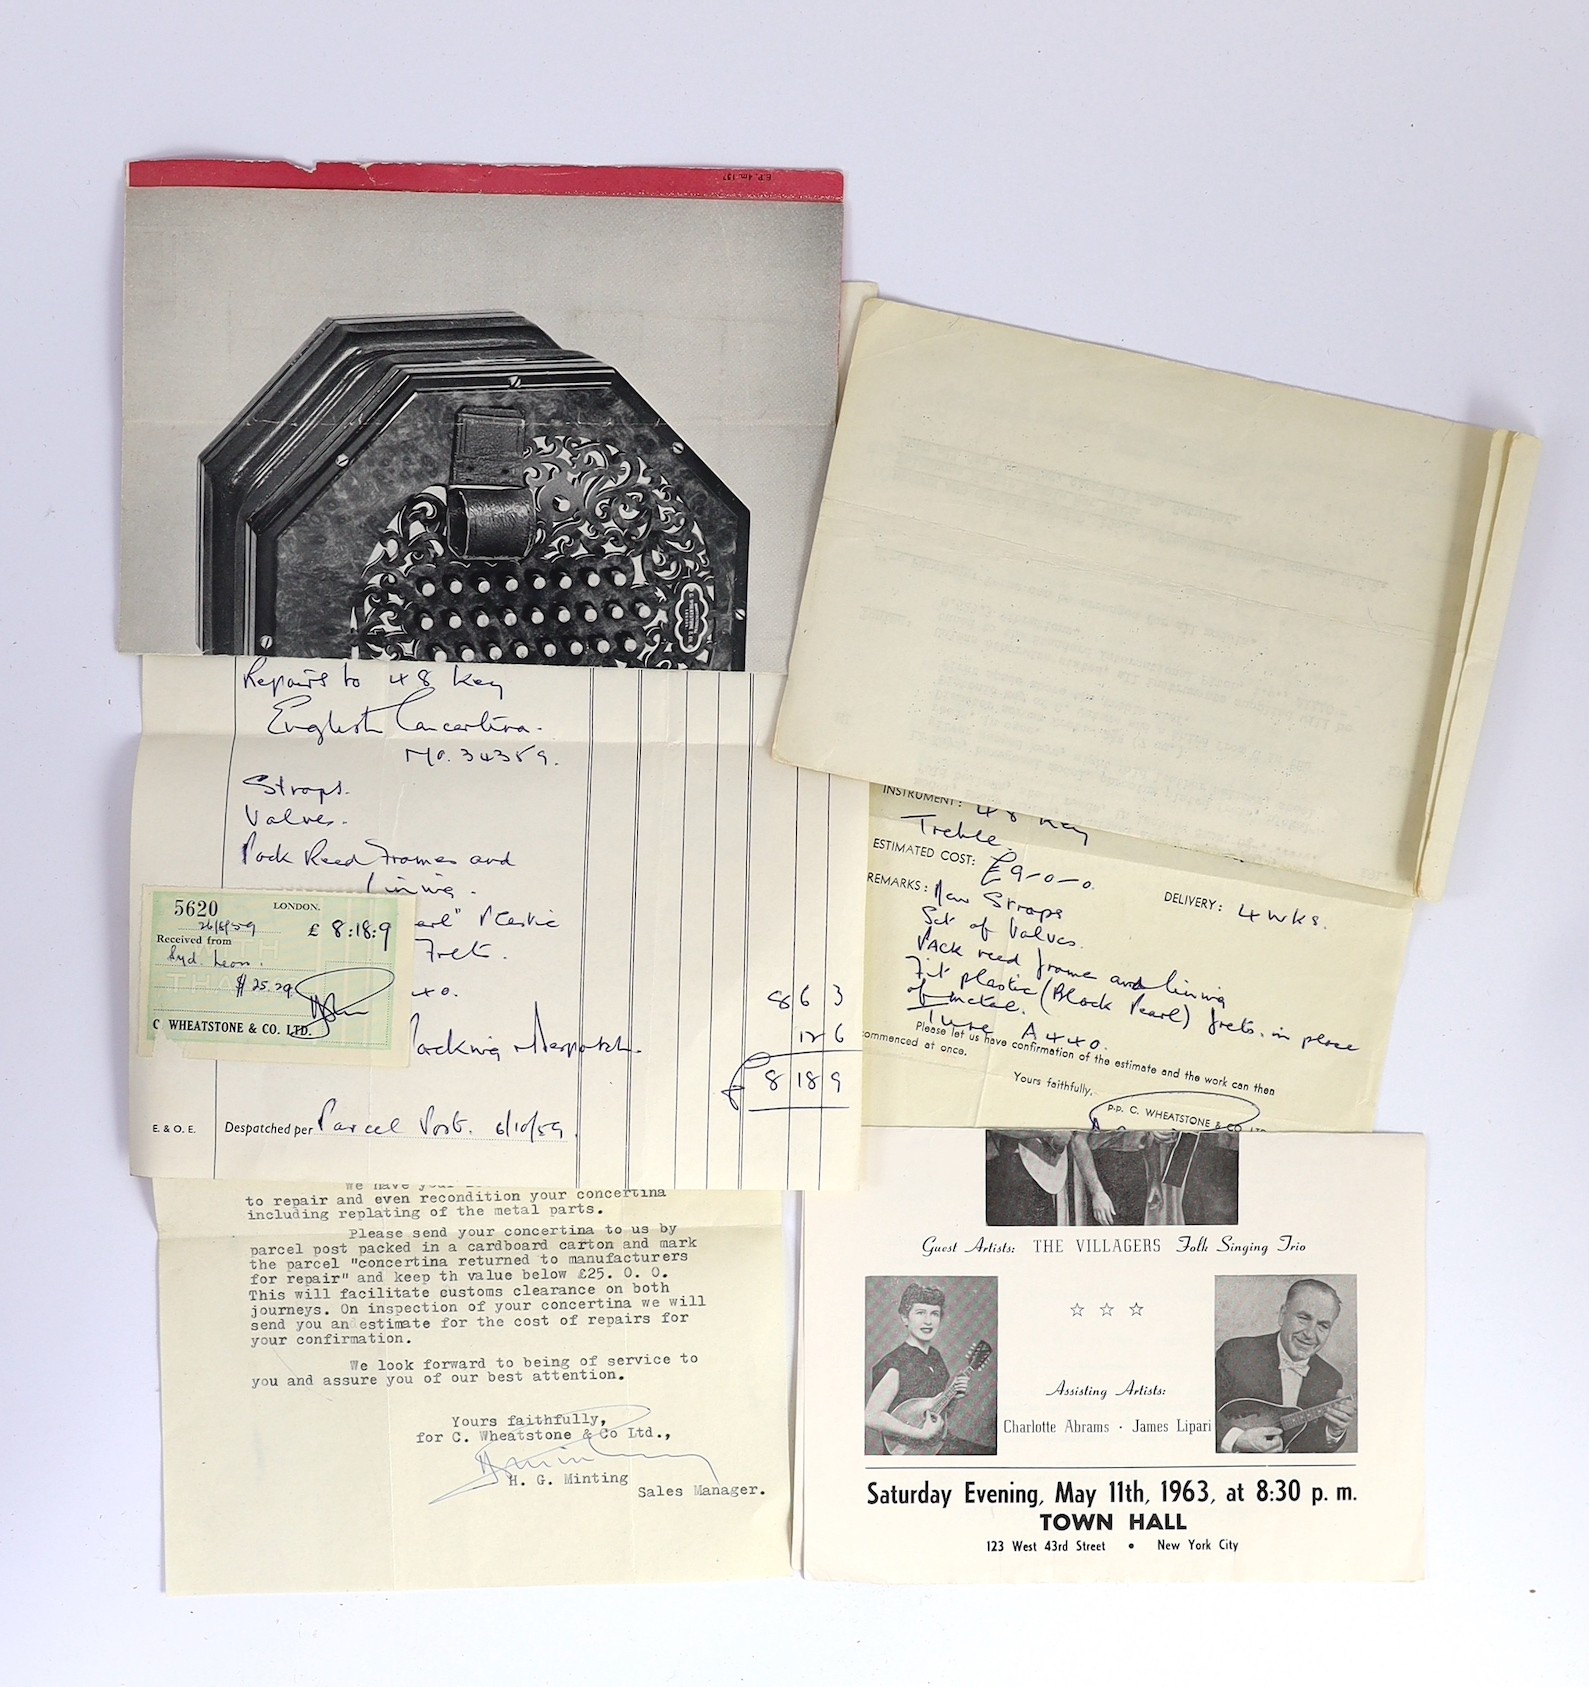 Repairs to 48 key
English Concertina.
No. 34359.
Straps.
Valves.
Pack Reed Frames and
lining.
earl" Plastic
Fret.
40.
8 6 3
Packing & Despatch.
12 6
£ 8 18 9
E. & O. E.
Despatched per Parcel Post. 6/10/59.
5620 LONDON.
£ 8:18:9
Received from
Syd. Leon.
$25.29
C WHEATSTONE & CO. LTD.
We have your
to repair and even recondition your concertina
including replating of the metal parts.
Please send your concertina to us by
parcel post packed in a cardboard carton and mark
the parcel "concertina returned to manufacturers
for repair" and keep th value below £25. 0. 0.
This will facilitate customs clearance on both
journeys. On inspection of your concertina we will
send you an estimate for the cost of repairs for
your confirmation.
We look forward to being of service to
you and assure you of our best attention.
Yours faithfully,
for C. Wheatstone & Co Ltd.,
H. G. Minting
Sales Manager.
INSTRUMENT: 48 Key
Treble.
ESTIMATED COST: £9-0-0.
DELIVERY: 4 wks.
REMARKS: New Straps
Set of Valves.
Pack reed frame and lining
Fit plastic (Black Pearl) frets. in place
of metal.
Tune A 440.
Please let us have confirmation of the estimate and the work can then
commenced at once.
Yours faithfully,
p.p. C. WHEATSTONE & CO. LT
Guest Artists: THE VILLAGERS Folk Singing Trio
☆ ☆ ☆
Assisting Artists:
Charlotte Abrams · James Lipari
Saturday Evening, May 11th, 1963, at 8:30 p. m.
TOWN HALL
123 West 43rd Street • New York City